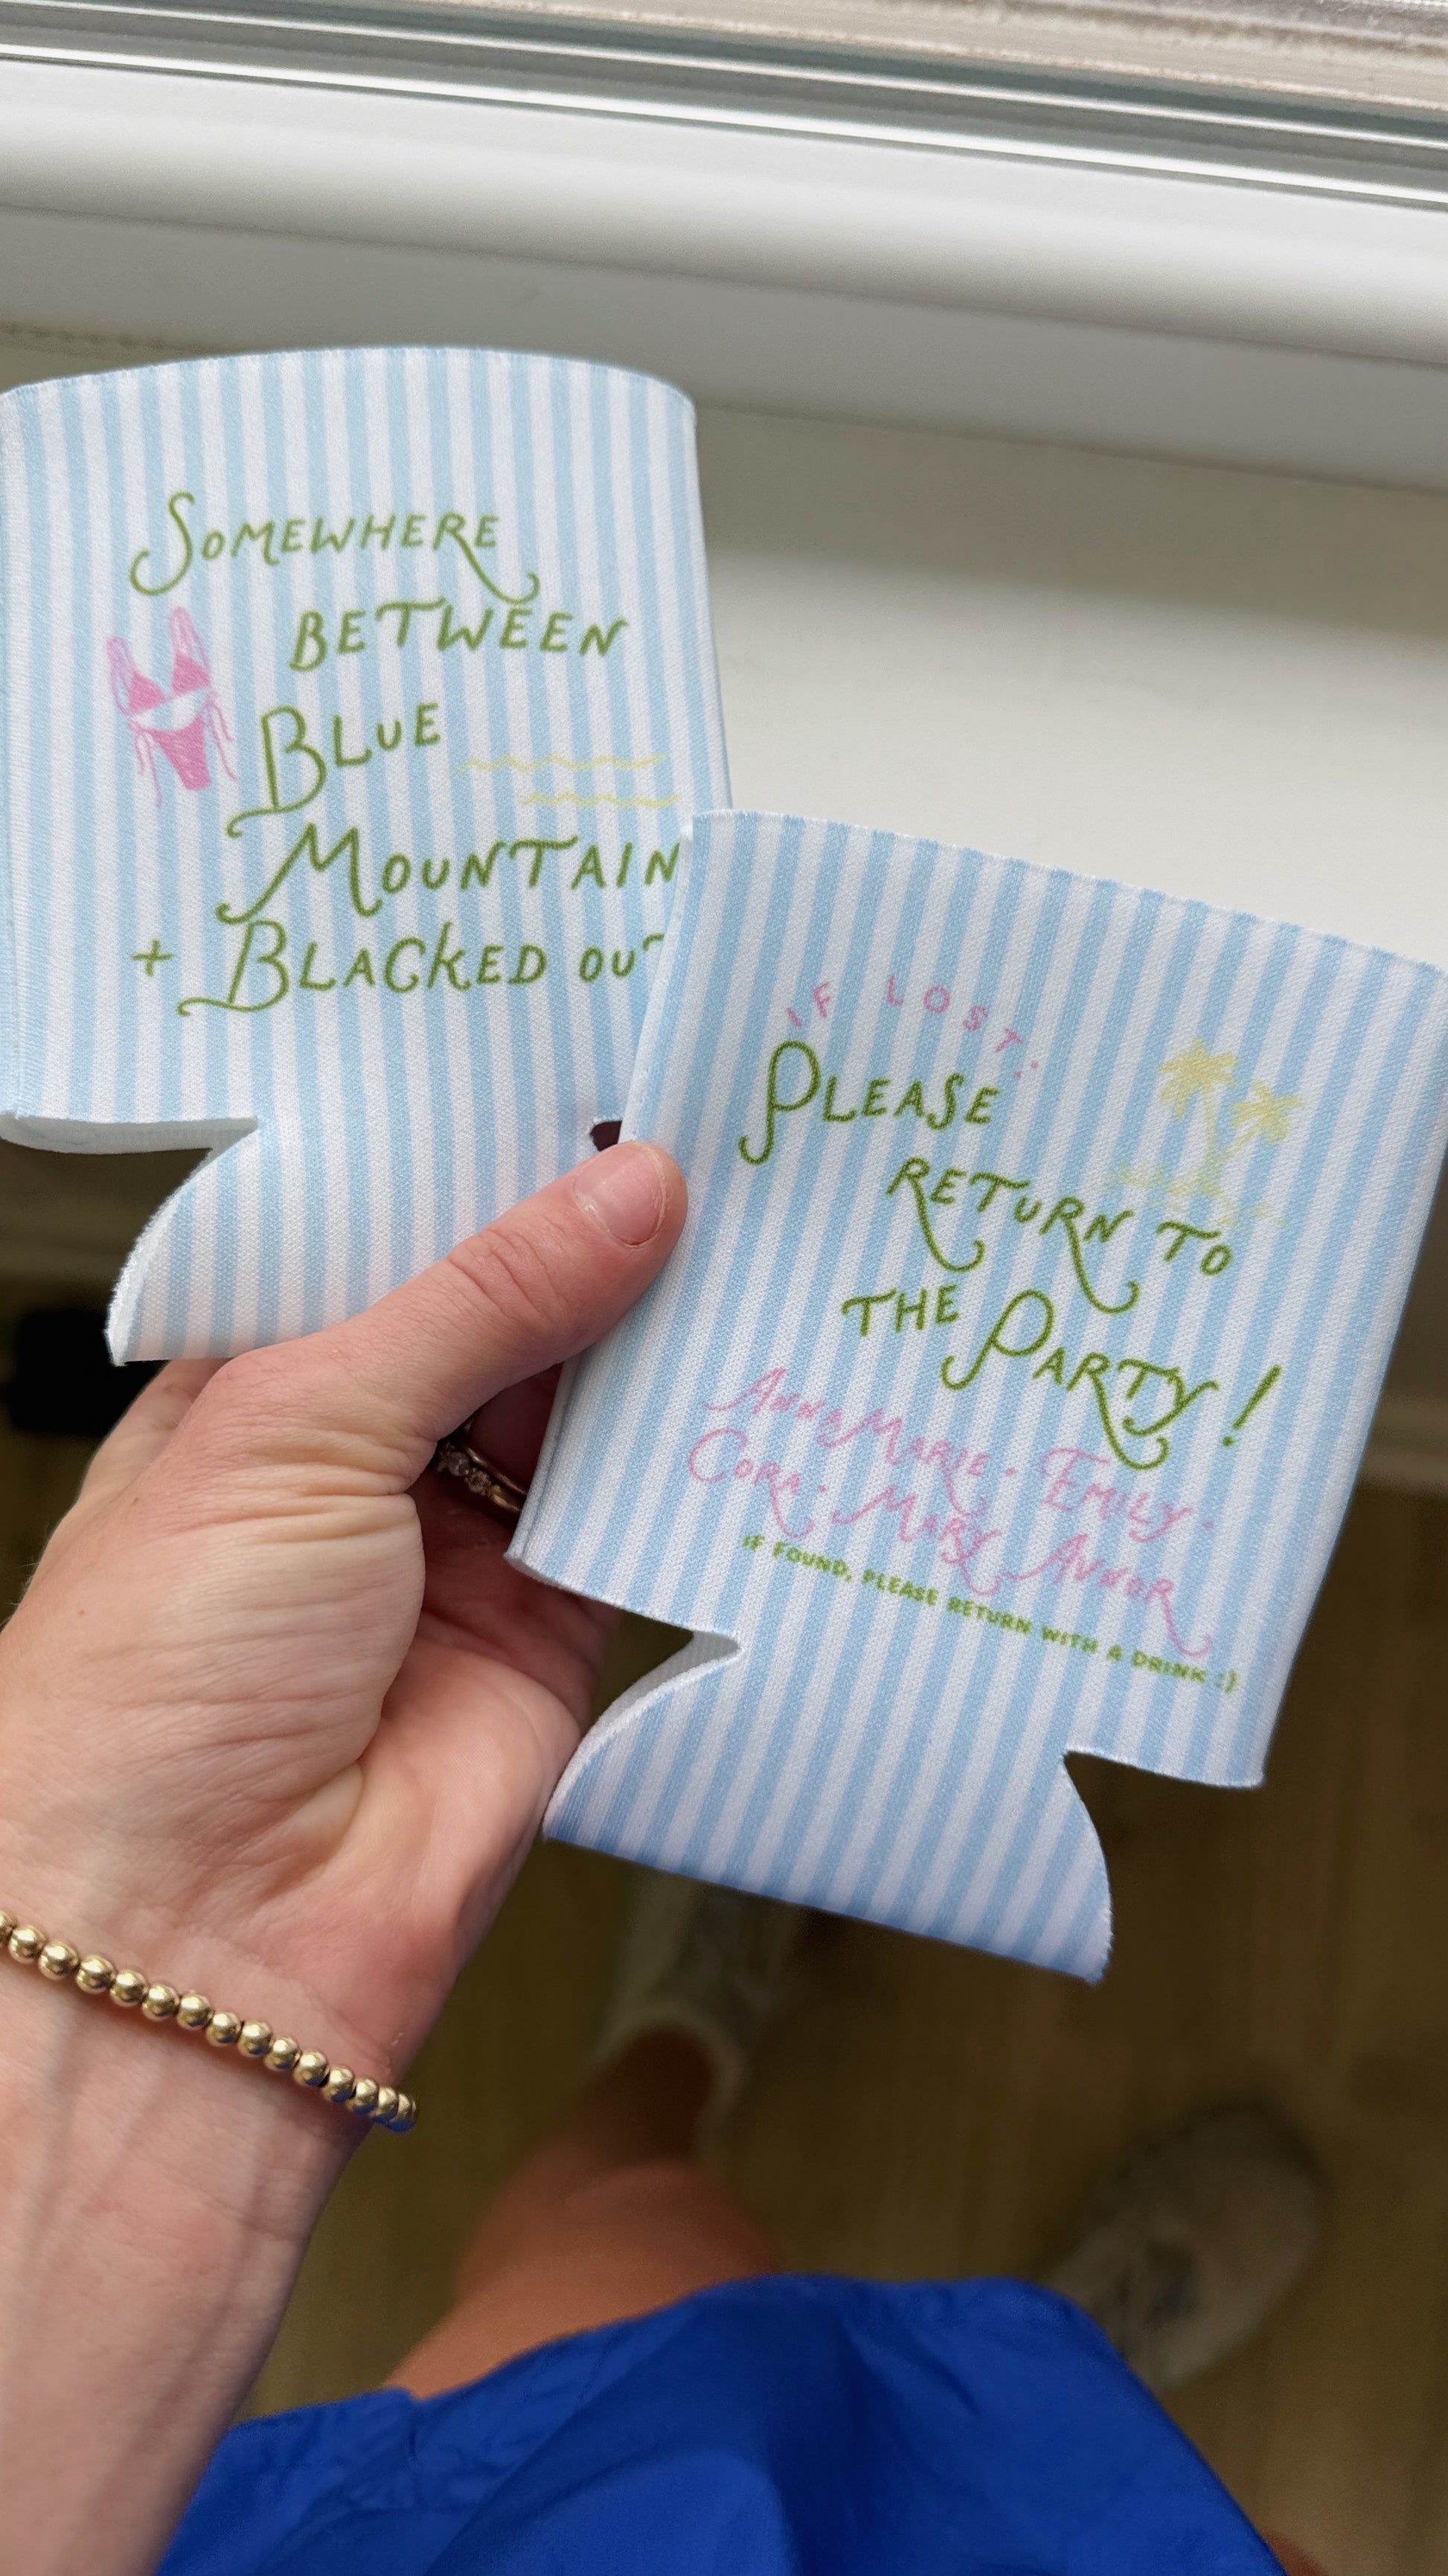 Somewhere
between
Blue
Mountain
+ Blacked out
IF LOST:
Please
return to
the Party!
AnnaMarie · Emily ·
Cora · Mary Avnor
IF FOUND, PLEASE RETURN WITH A DRINK :)